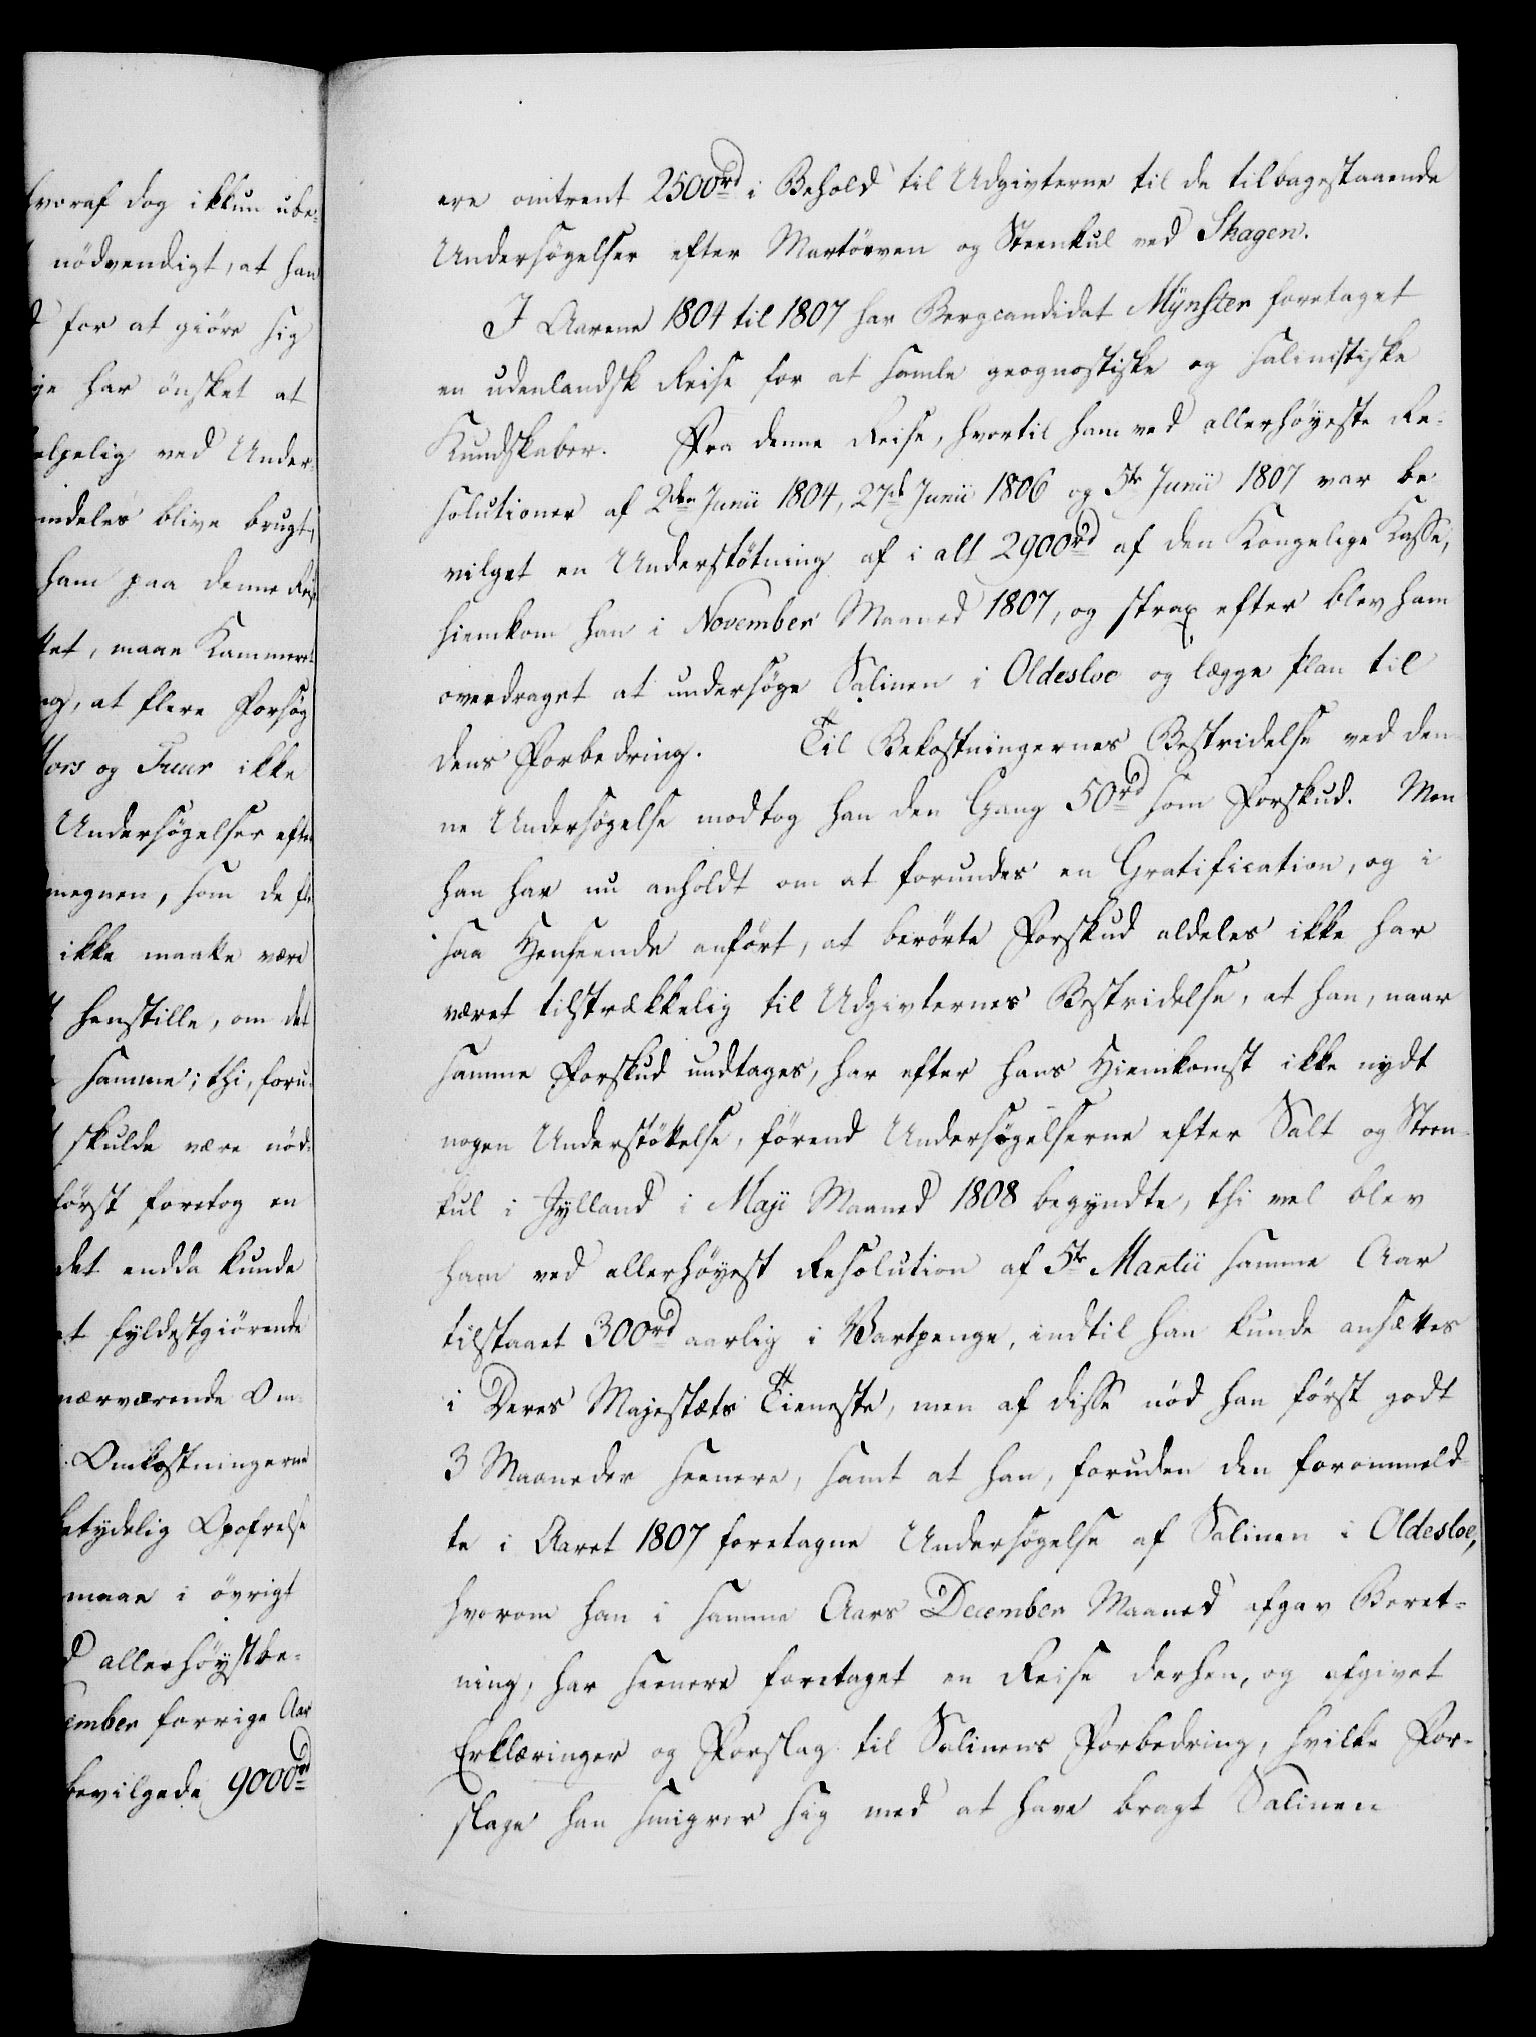 hvoraf dog ikkun ube-
nödvendigt, at han
for at giöre sig
har önsket at
ved Under-
blive brugt,
ham paa denne Rei-
maae Kammeret
at flere Forsög
og Fuur ikke
Undersögelser efter
som de
ikke maatte være
henstille, om det
samme; thi, foru-
skulde være nöd-
först foretog en
det endda kunde
fyldestgiörende
nærværende Om-
Omkostningerne
betydelig Opofrelse
maae i övrigt
allerhöystbe-
forrige Aar
bevilgede 9000rd
ere omtrent 2500rd i Behold til Udgivterne til de tilbagestaaende
Undersögelser efter Martörven og Steenkul ved Skagen.
I Aarene 1804 til 1807 har Bergcandidat Mÿnster foretaget
en udenlandsk Reise for at samle geognostiske og salinistiske
Kundskaber. Fra denne Reise, hvortil ham ved allerhöyeste Re-
solutioner af 2den Junii 1804, 27de Junii 1806 og 5te Junii 1807 var be
vilget en Understötning af i alt 2900rd af den Kongelige Kasse,
hiemkom han i November Maaned 1807, og strax efter blev ham
overdraget at undersöge Salinen i Oldesloe og lægge Plan til
dens Forbedring. Til Bekostningernes Bestridelse ved den-
ne Undersögelse modtog han den Gang 50rd som Forskud. Men
han har nu anholdt om at forundes en Gratification, og i
saa Henseende anfört, at berörte Forskud aldeles ikke har
været tilstrækkelig til Udgivternes Bestridelse, at han, naar
samme Forskud undtages, har efter hans Hiemkomst ikke nydt
nogen Understöttelse, förend Undersögelserne efter Salt og Steen-
kul i Jylland i Maji Maaned 1808 begyndte, thi vel blev
ham ved allerhöyest Resolution af 5te Martii samme Aar
tilstaaet 300rd aarlig i Vartpenge, indtil han kunde ansættes
i Deres Majestæts Tieneste, men af disse nöd han först godt
3 Maaneder seenere, samt at han, foruden den forommeld-
te i Aaret 1807 foretagne Undersögelse af Salinen i Oldesloe,
hvorom han i samme Aars December Maaned afgav Beret-
ning, har seenere foretaget en Reise derhen, og afgivet
Erklæringer og Forslag til Salinens Forbedring, hvilke For-
slage han smigrer sig med at have bragt Salinen